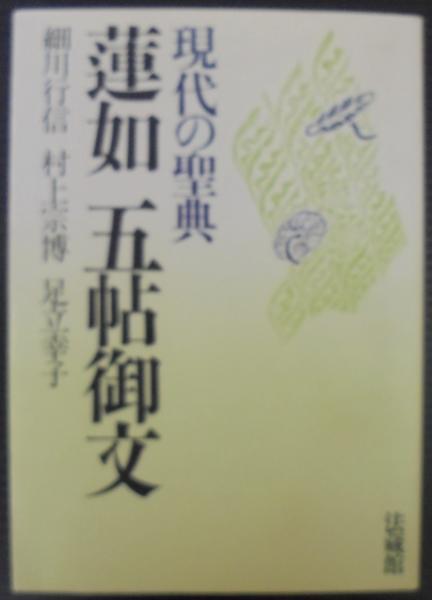 現代の聖典
蓮如 五帖御文
細川行信 村上宗博 足立幸子
法藏館